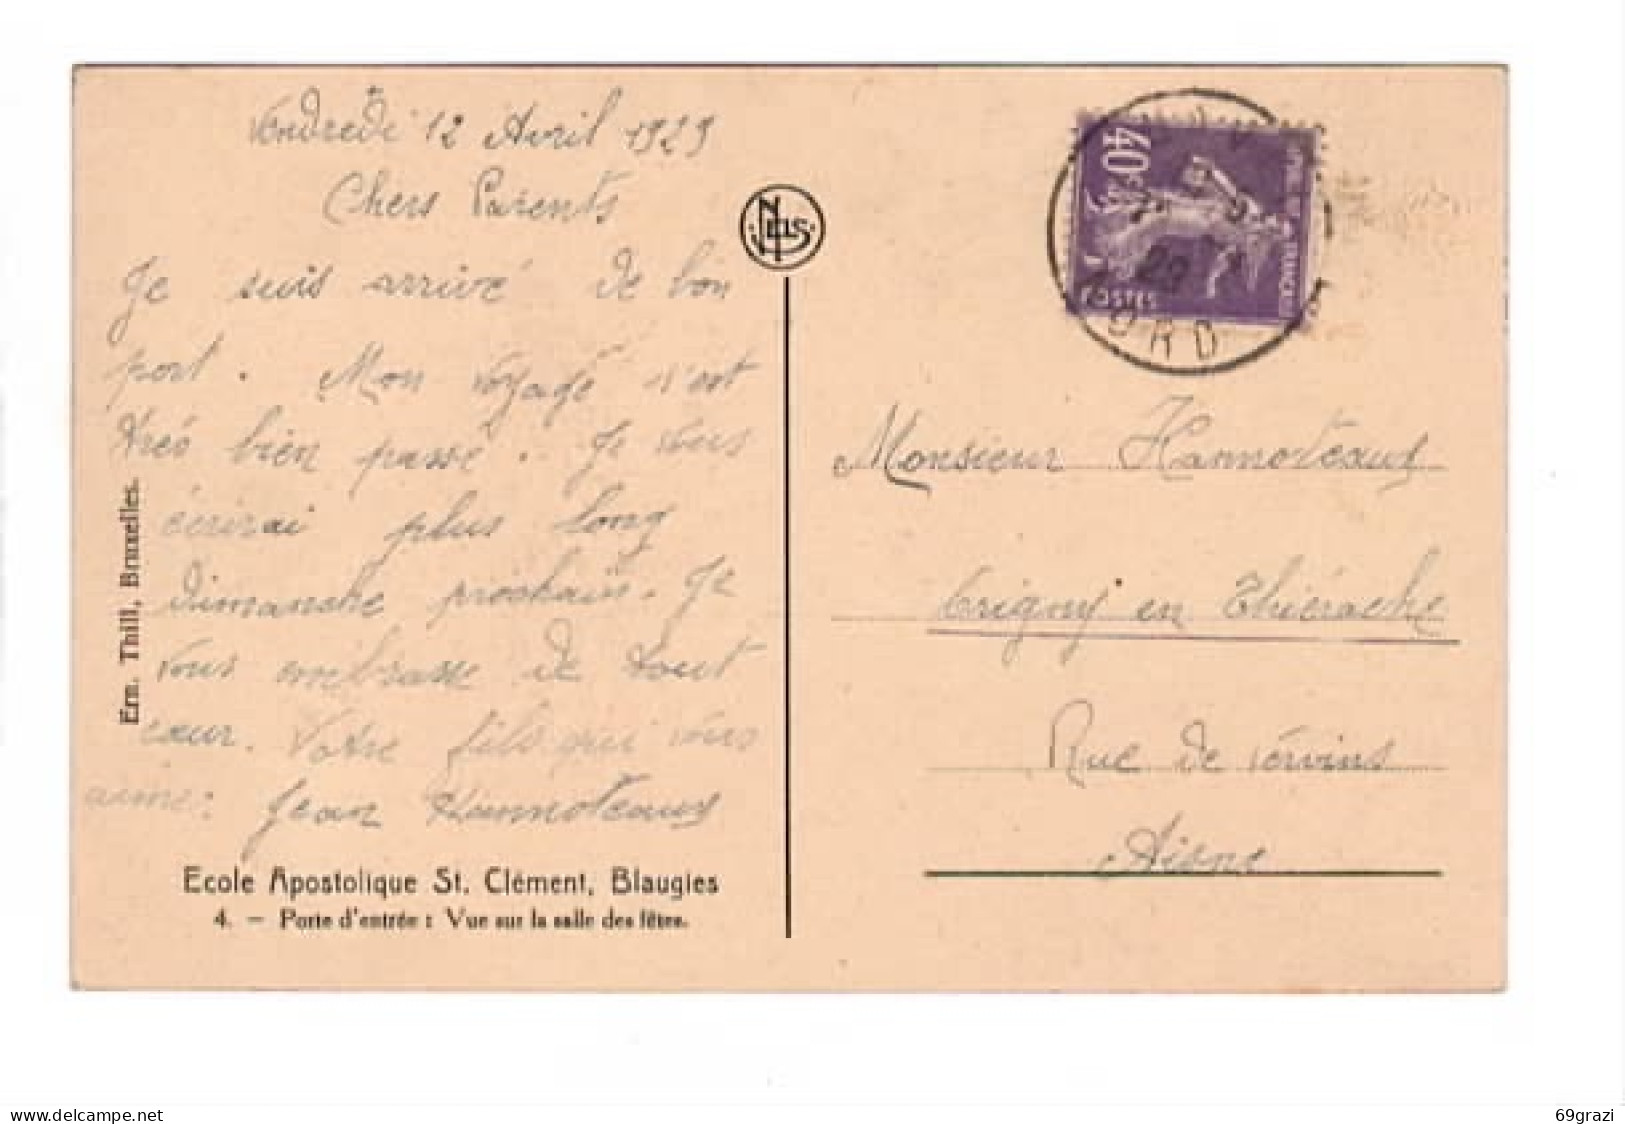 Vendredi 12 Avril 1929
Chers Parents
Je suis arrivé de bon
port. Mon voyage s'est
très bien passé. Je vous
écrirai plus long
dimanche prochain. Je
vous embrasse de tout
cœur. Votre fils qui vous
aime: Jean Hannoteaux
Ern. Thill, Bruxelles.
Ecole Apostolique St. Clément, Blaugies
4. — Porte d'entrée : Vue sur la salle des fêtes.
NELS
40c
POSTES
29
NORD
Monsieur Hannoteaux
Origny en Thiérache
Rue de Vervins
Aisne
69grazi
www.delcampe.net